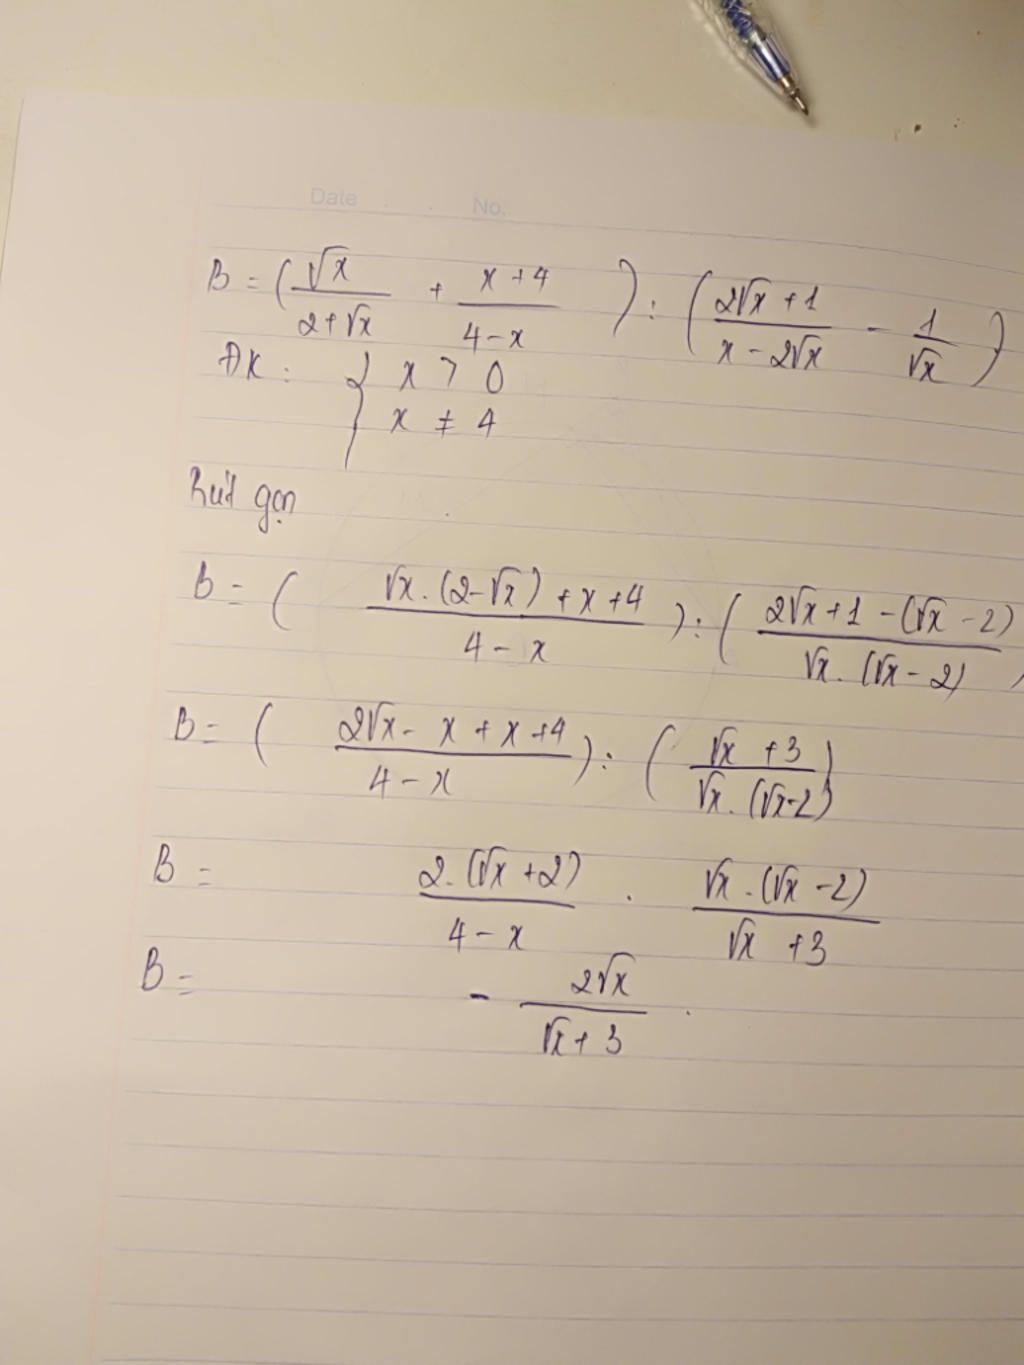 Date . . No.
B = ( √x / (2+√x) + (x+4) / (4-x) ) : ( (2√x+1) / (x-2√x) - 1 / √x )
ĐK : { x > 0
x ≠ 4
Rút gọn
B = ( (√x.(2-√x)+x+4) / (4-x) ) : ( (2√x+1-(√x-2)) / (√x.(√x-2)) )
B = ( (2√x-x+x+4) / (4-x) ) : ( (√x+3) / (√x.(√x-2)) )
B = (2.(√x+2)) / (4-x) . (√x.(√x-2)) / (√x+3)
B = - 2√x / (√x+3) .